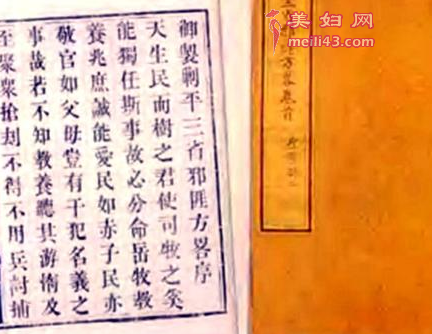 美妇网
meili43.com
方畧卷首
御製剿平三省邪匪方畧序
天生民而樹之君使司牧之奚
能獨任斯事故必分命岳牧教
養兆庶誠能愛民如赤子民亦
敬官如父母豈有干犯名義之
事哉若不知教養聽其游惰及
至聚衆搶刼不得不用兵討捕